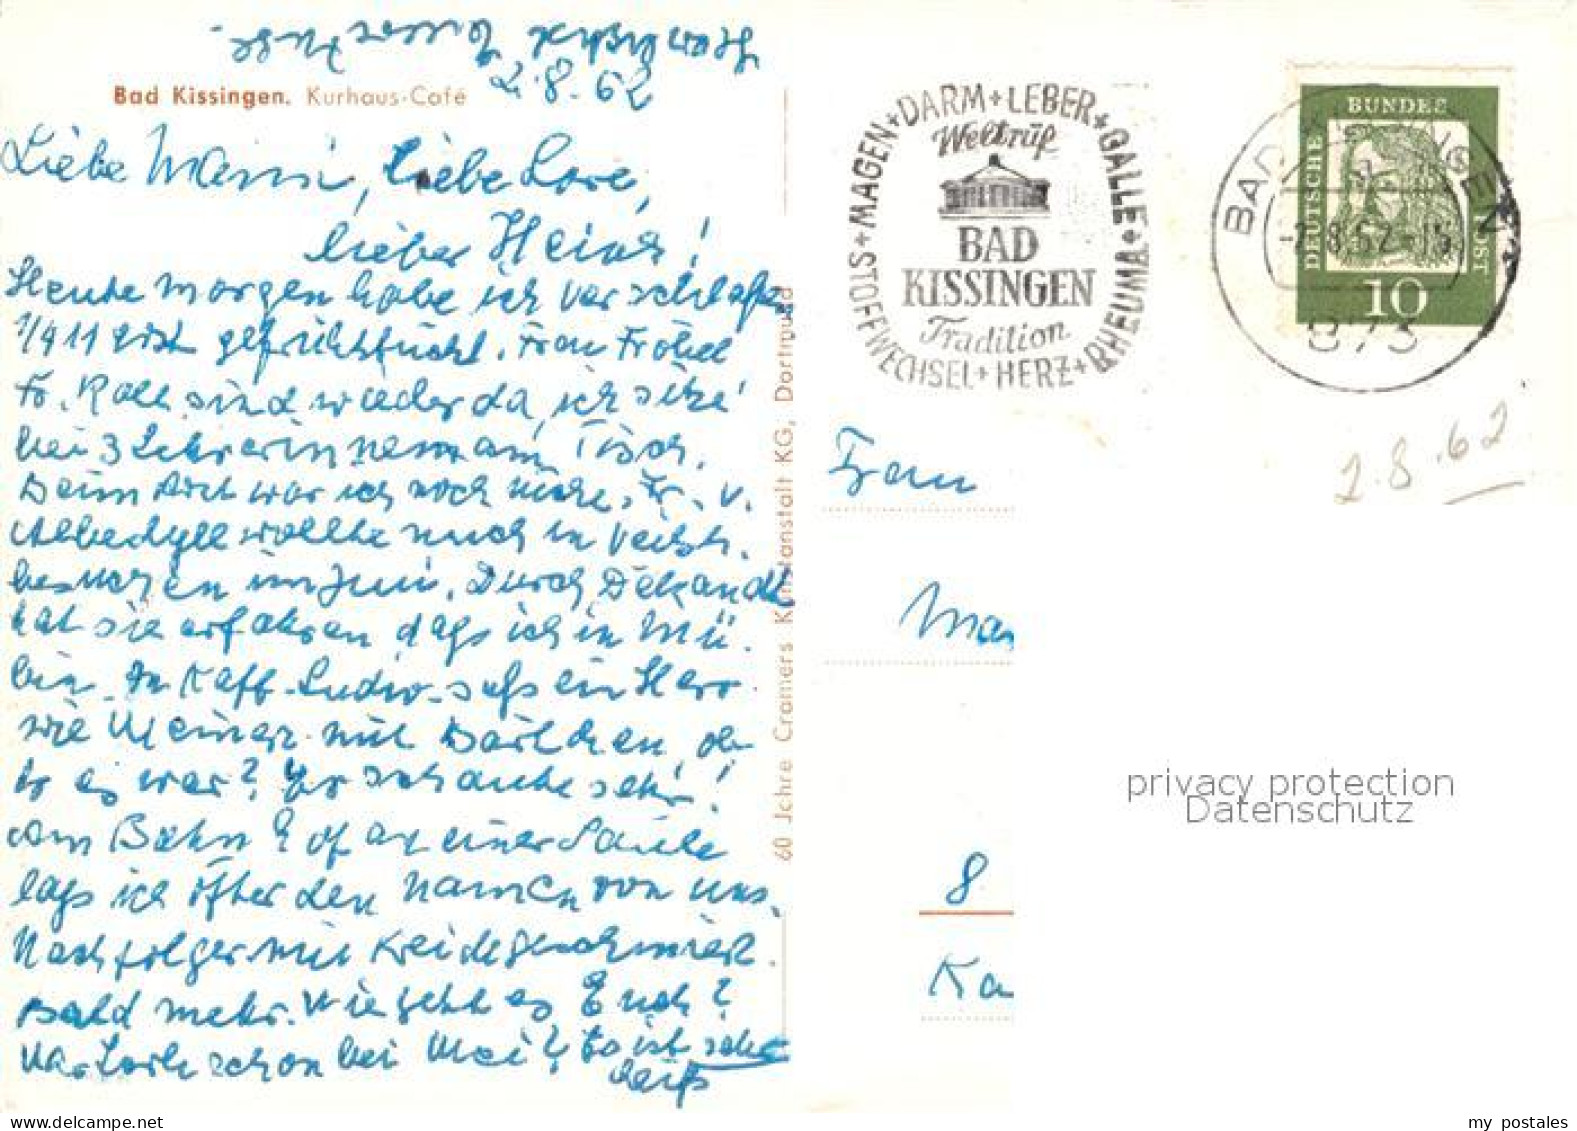 2.8.62
Bad Kissingen. Kurhaus-Café
Liebe Manni, liebe Lore,
lieber Heinz!
Heute morgen habe ich verschlafen
1/4 11 erst gefrühstückt. Frau Fröbel
Fr. Roll sind wieder da, ich sitze
bei 3 Lehrerinnen am Tisch.
Beim Arzt war ich noch nicht. Fr. v.
Albedyll wollte mich in
besuchen im Juni. Durch
hat sie erfahren dass ich in Mü.
bin. In Kaff. Ludw. sass ein Herr
wie Meiner mit Bärtchen, ob
er es war? Er schaute sehr!
Am Bahnhof an einer Säule
lass ich öfter den Namen von uns.
Nachfolger mit Kreide geschmiert.
Bald mehr. Wie geht es Euch?
War Lore schon bei Mei? Es ist sehr
heiß
60 Jahre Cramers Kunstanstalt KG, Dortmund
STOFFWECHSEL+MAGEN+DARM+LEBER+GALLE+RHEUMA+HERZ+
Weltruf
BAD
KISSINGEN
Tradition
DEUTSCHE
BUNDES
POST
10
BAD KISSINGEN
-2.8.62-15
873
2.8.62
Frau
Man
8
Ka
privacy protection
Datenschutz
www.delcampe.net
my postales